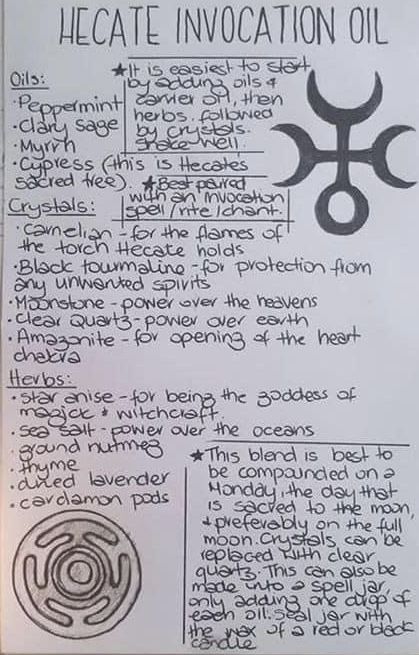 HECATE INVOCATION OIL
★It is easiest to start
by adding oils &
carrier oil, then
herbs, followed
by crystals.
Shake well.
Oils:
·Peppermint
·Clary sage
·Myrrh
·Cypress (this is Hecates
sacred tree).
★Best paired
with an invocation
spell/rite/chant.
Crystals:
·carnelian - for the flames of
the torch Hecate holds
·Black tourmaline - for protection from
any unwanted spirits
·Moonstone - power over the heavens
·Clear Quartz - power over earth
·Amazonite - for opening of the heart
chakra
Herbs:
·star anise - for being the goddess of
magick & witchcraft.
·sea salt - power over the oceans
·ground nutmeg
·thyme
·dried lavender
·cardamon pods
★This blend is best to
be compounded on a
Monday, the day that
is sacred to the moon,
& preferably on the full
moon. Crystals can be
replaced with clear
quartz. This can also be
made into a spell jar,
only adding one drop of
each oil. Seal jar with
the wax of a red or black
candle